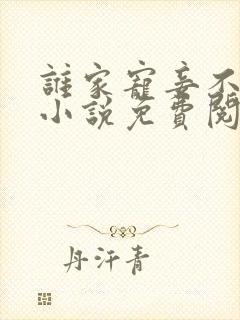 誰家寵妾不
小說免費閱
丹汗青